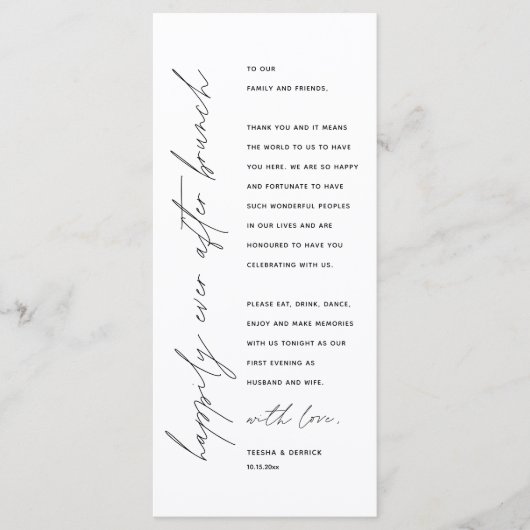 happily ever after brunch
TO OUR
FAMILY AND FRIENDS,
THANK YOU AND IT MEANS
THE WORLD TO US TO HAVE
YOU HERE. WE ARE SO HAPPY
AND FORTUNATE TO HAVE
SUCH WONDERFUL PEOPLES
IN OUR LIVES AND ARE
HONOURED TO HAVE YOU
CELEBRATING WITH US.
PLEASE EAT, DRINK, DANCE,
ENJOY AND MAKE MEMORIES
WITH US TONIGHT AS OUR
FIRST EVENING AS
HUSBAND AND WIFE.
with love,
TEESHA & DERRICK
10.15.20xx